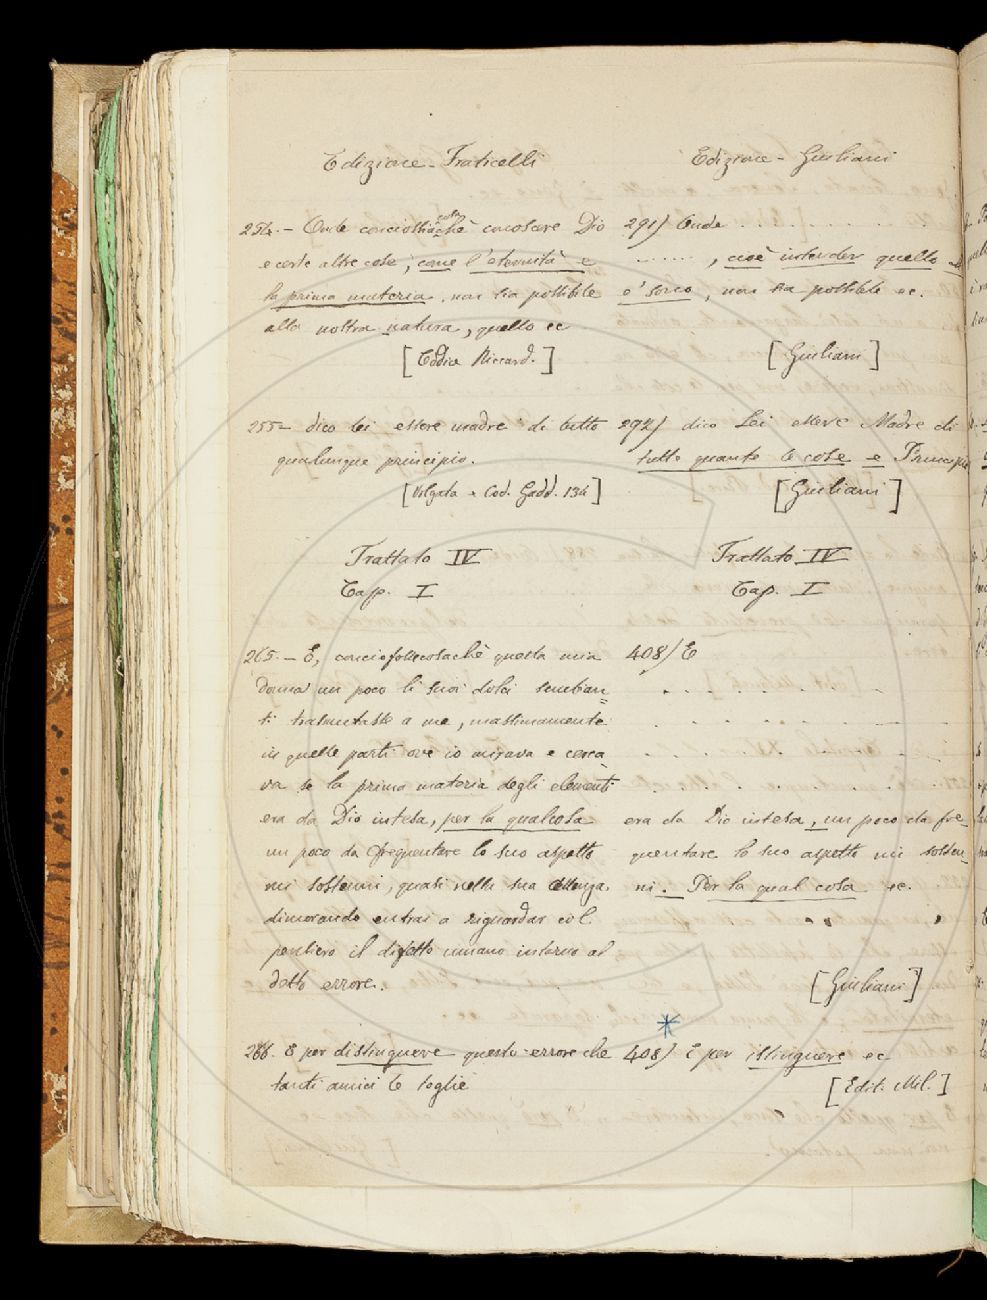 Edizione - Fraticelli
254. - Onde conciossia cosa chè conoscere Dio
e certe altre cose, come l'eternità e
la prima materia, non sia possibile
alla nostra natura, quello ec
[Codice Riccard.]
255 - dico lei essere madre di tutto
qualunque principio.
[Volgata e Cod. Gadd. 134]
Trattato IV
Cap. I
265. - E, conciofossecosachè questa mia
donna un poco li suoi dolci sembian=
ti trasmutasse a me, massimamente
in quelle parti ove io mirava e cerca
va se la prima materia degli elementi
era da Dio intesa, per la qualcosa
un poco da frequentare lo suo aspetto
mi sostenni, quasi nella sua assenza
dimorando entrai a riguardar col
pensiero il difetto umano intorno al
detto errore.
266. E per distinguere questo errore che
tanti amici le toglie
Edizione - Giuliani
291) Onde . . . . . . . .
. . . . . . , cioè intender quello
e' sono, non sia possibile ec.
[Giuliani]
292) dico Lei essere Madre di
tutte quante le cose e Principio
[Giuliani]
Trattato IV
Cap. I
408) E
era da Dio intesa, un poco da fre-
quentare lo suo aspetto mi sosten
ni. Per la qual cosa ec.
[Giuliani]
*
408) E per istinguere ec
[Edit. Mil.]